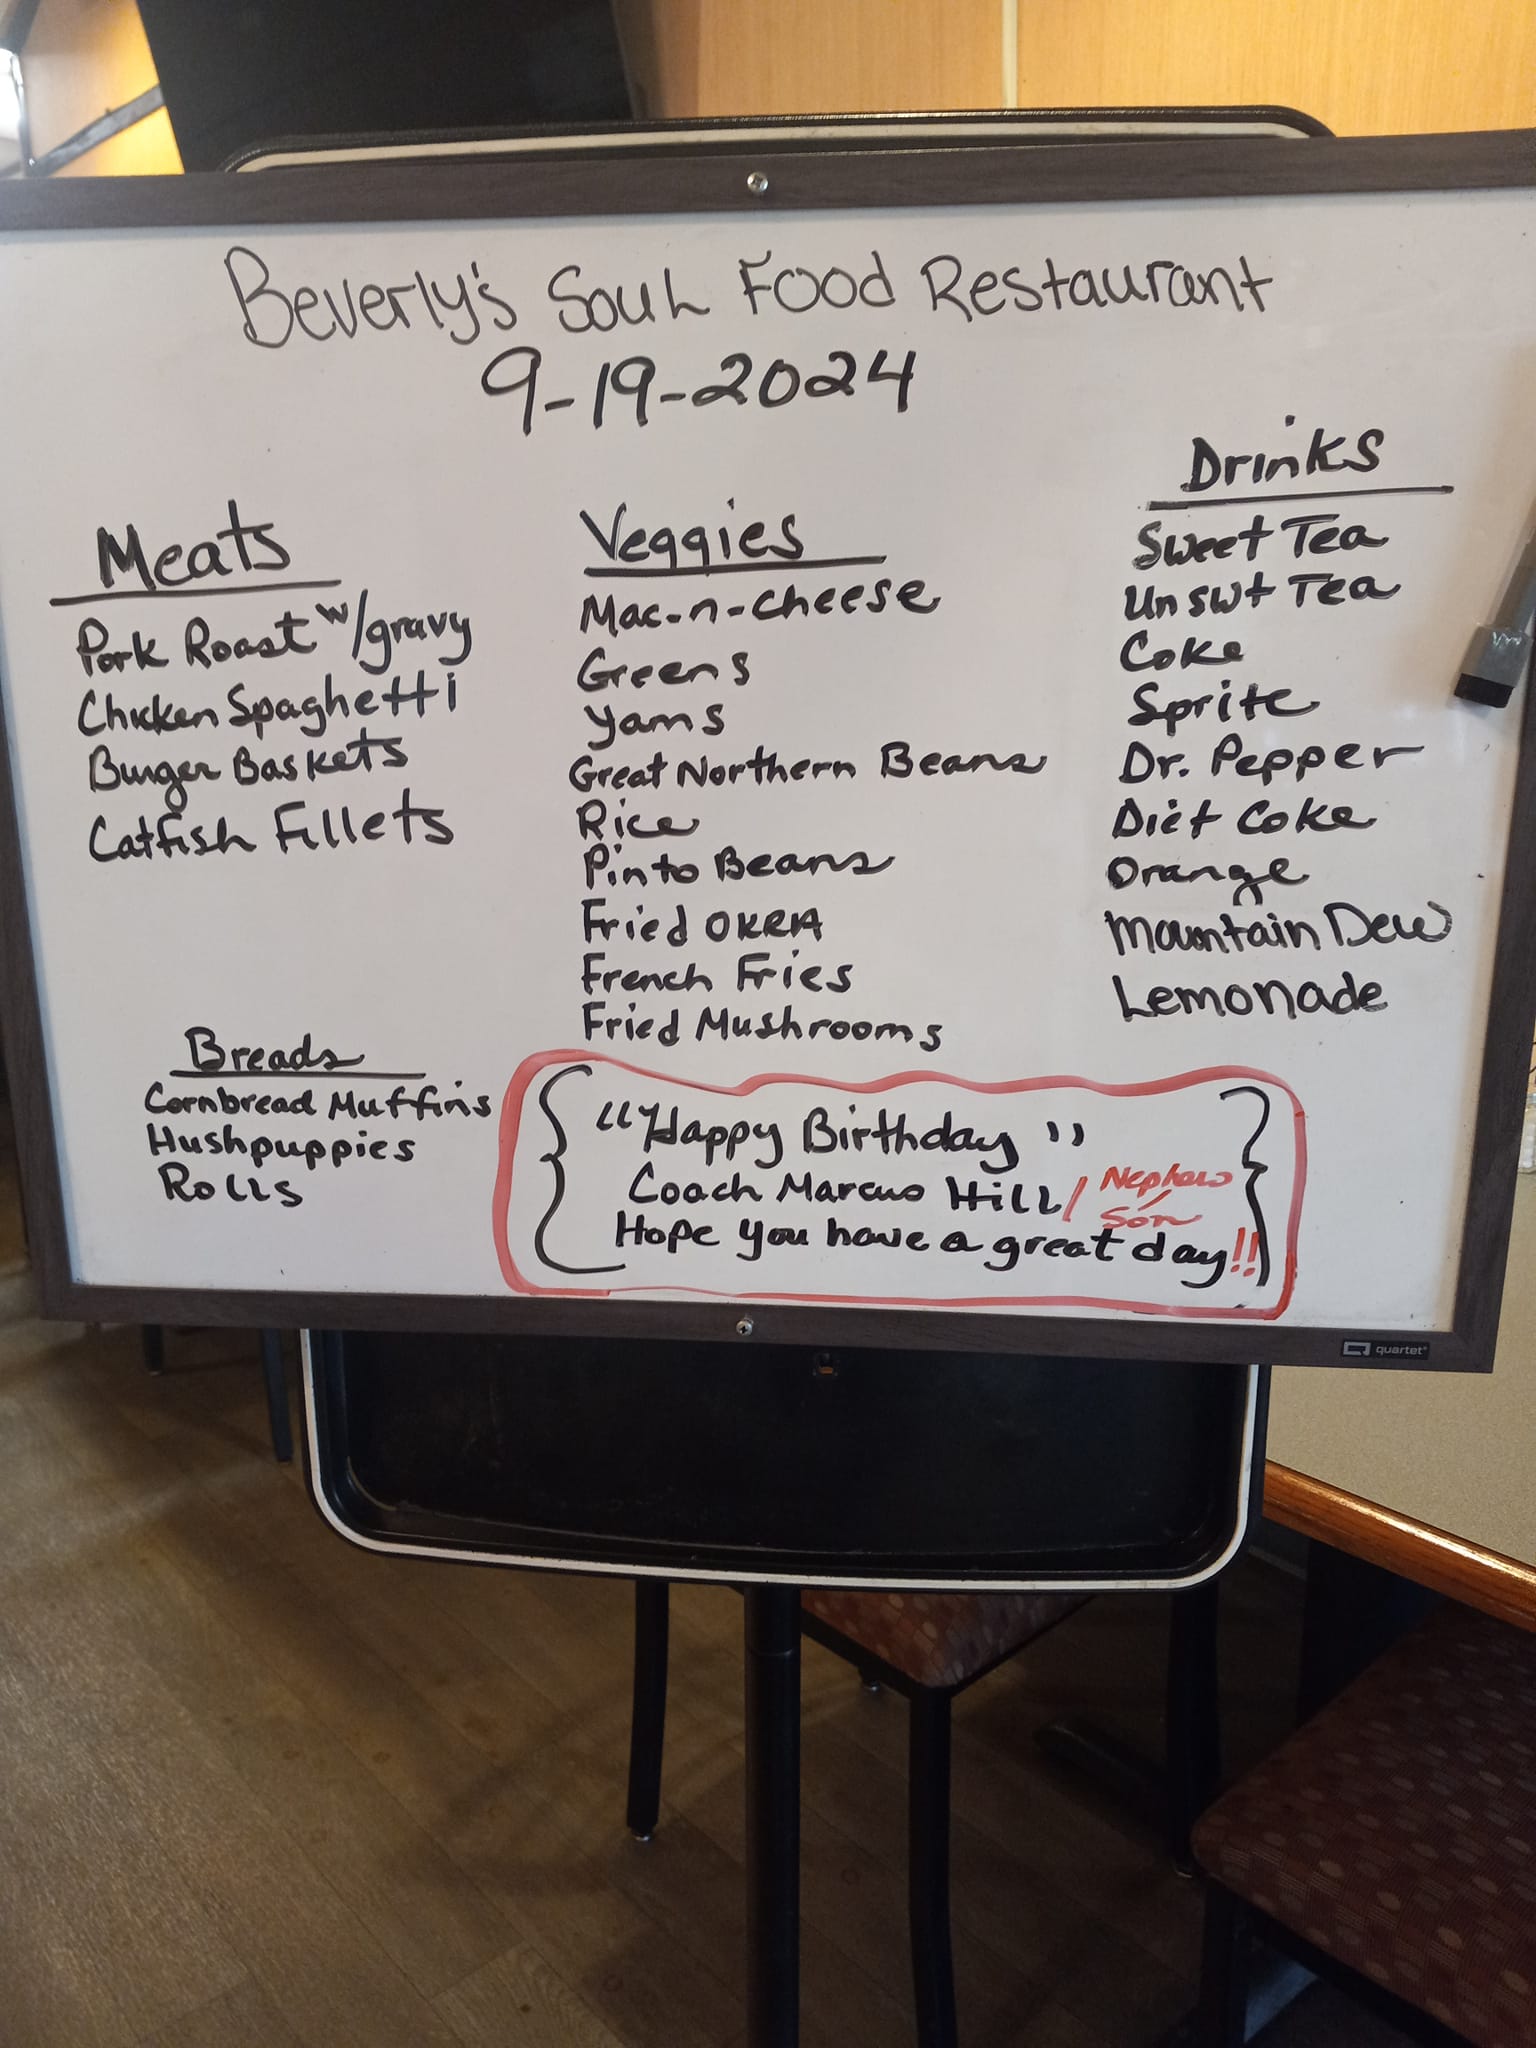 Beverly's Soul Food Restaurant
9-19-2024
Meats
Pork Roast w/gravy
Chicken Spaghetti
Burger Baskets
Catfish Fillets
Breads
Cornbread Muffins
Hushpuppies
Rolls
Veggies
Mac-n-cheese
Greens
Yams
Great Northern Beans
Rice
Pinto Beans
Fried OKRA
French Fries
Fried Mushrooms
Drinks
Sweet Tea
Unswt Tea
Coke
Sprite
Dr. Pepper
Diet Coke
Orange
Mountain Dew
Lemonade
"Happy Birthday"
Coach Marcus Hill/ Nephew/
Son
Hope you have a great day!!
quartet®